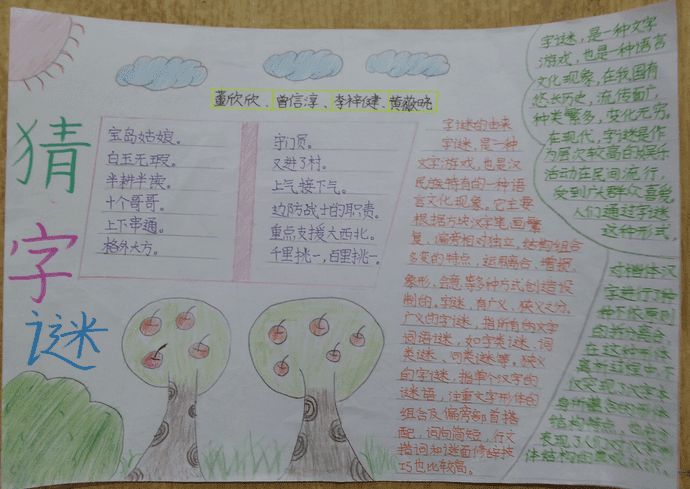 猜
字
谜
董欣欣、曾信淳、李梓健、黄薇
宝岛姑娘。
白玉无瑕。
半耕半读。
十个哥哥。
上下串通。
格外大方。
守门员。
又进了村。
上气接下气。
边防战士的职责。
重点支援大西北。
千里挑一,百里挑一。
字谜的由来
字谜,是一种
文字游戏,也是汉
民族特有的一种语
言文化现象。它主要
根据方块汉字笔画繁
复、偏旁相对独立,结构组合
多变的特点,运用离合、增损、
象形、会意等多种方式创造设
制的。字谜,有广义、狭义之分。
广义的字谜,指所有的文字
词语谜,如字类谜、词
类谜、句类谜等。狭义
的字谜,指单个汉字的
谜语,注重文字形体的
组合及偏旁部首搭
配,词句简短,行文
措词和谜面修辞技
巧也比较高。
字谜,是一种文字
游戏,也是一种语言
文化现象,在我国有
悠长历史,流传面广,
种类繁多,变化无穷。
在现代,字谜是作
为层次较高的娱乐
活动在民间流行,
受到广大群众喜爱。
人们通过字谜
这种形式,
对楷体汉
字进行了多
种不依原则
的拆分离合,
在这种形体
离析过程中,不
仅呈现了汉字本
身所蕴含的形体
结构特点,也体
现了人们对汉字形
体结构的